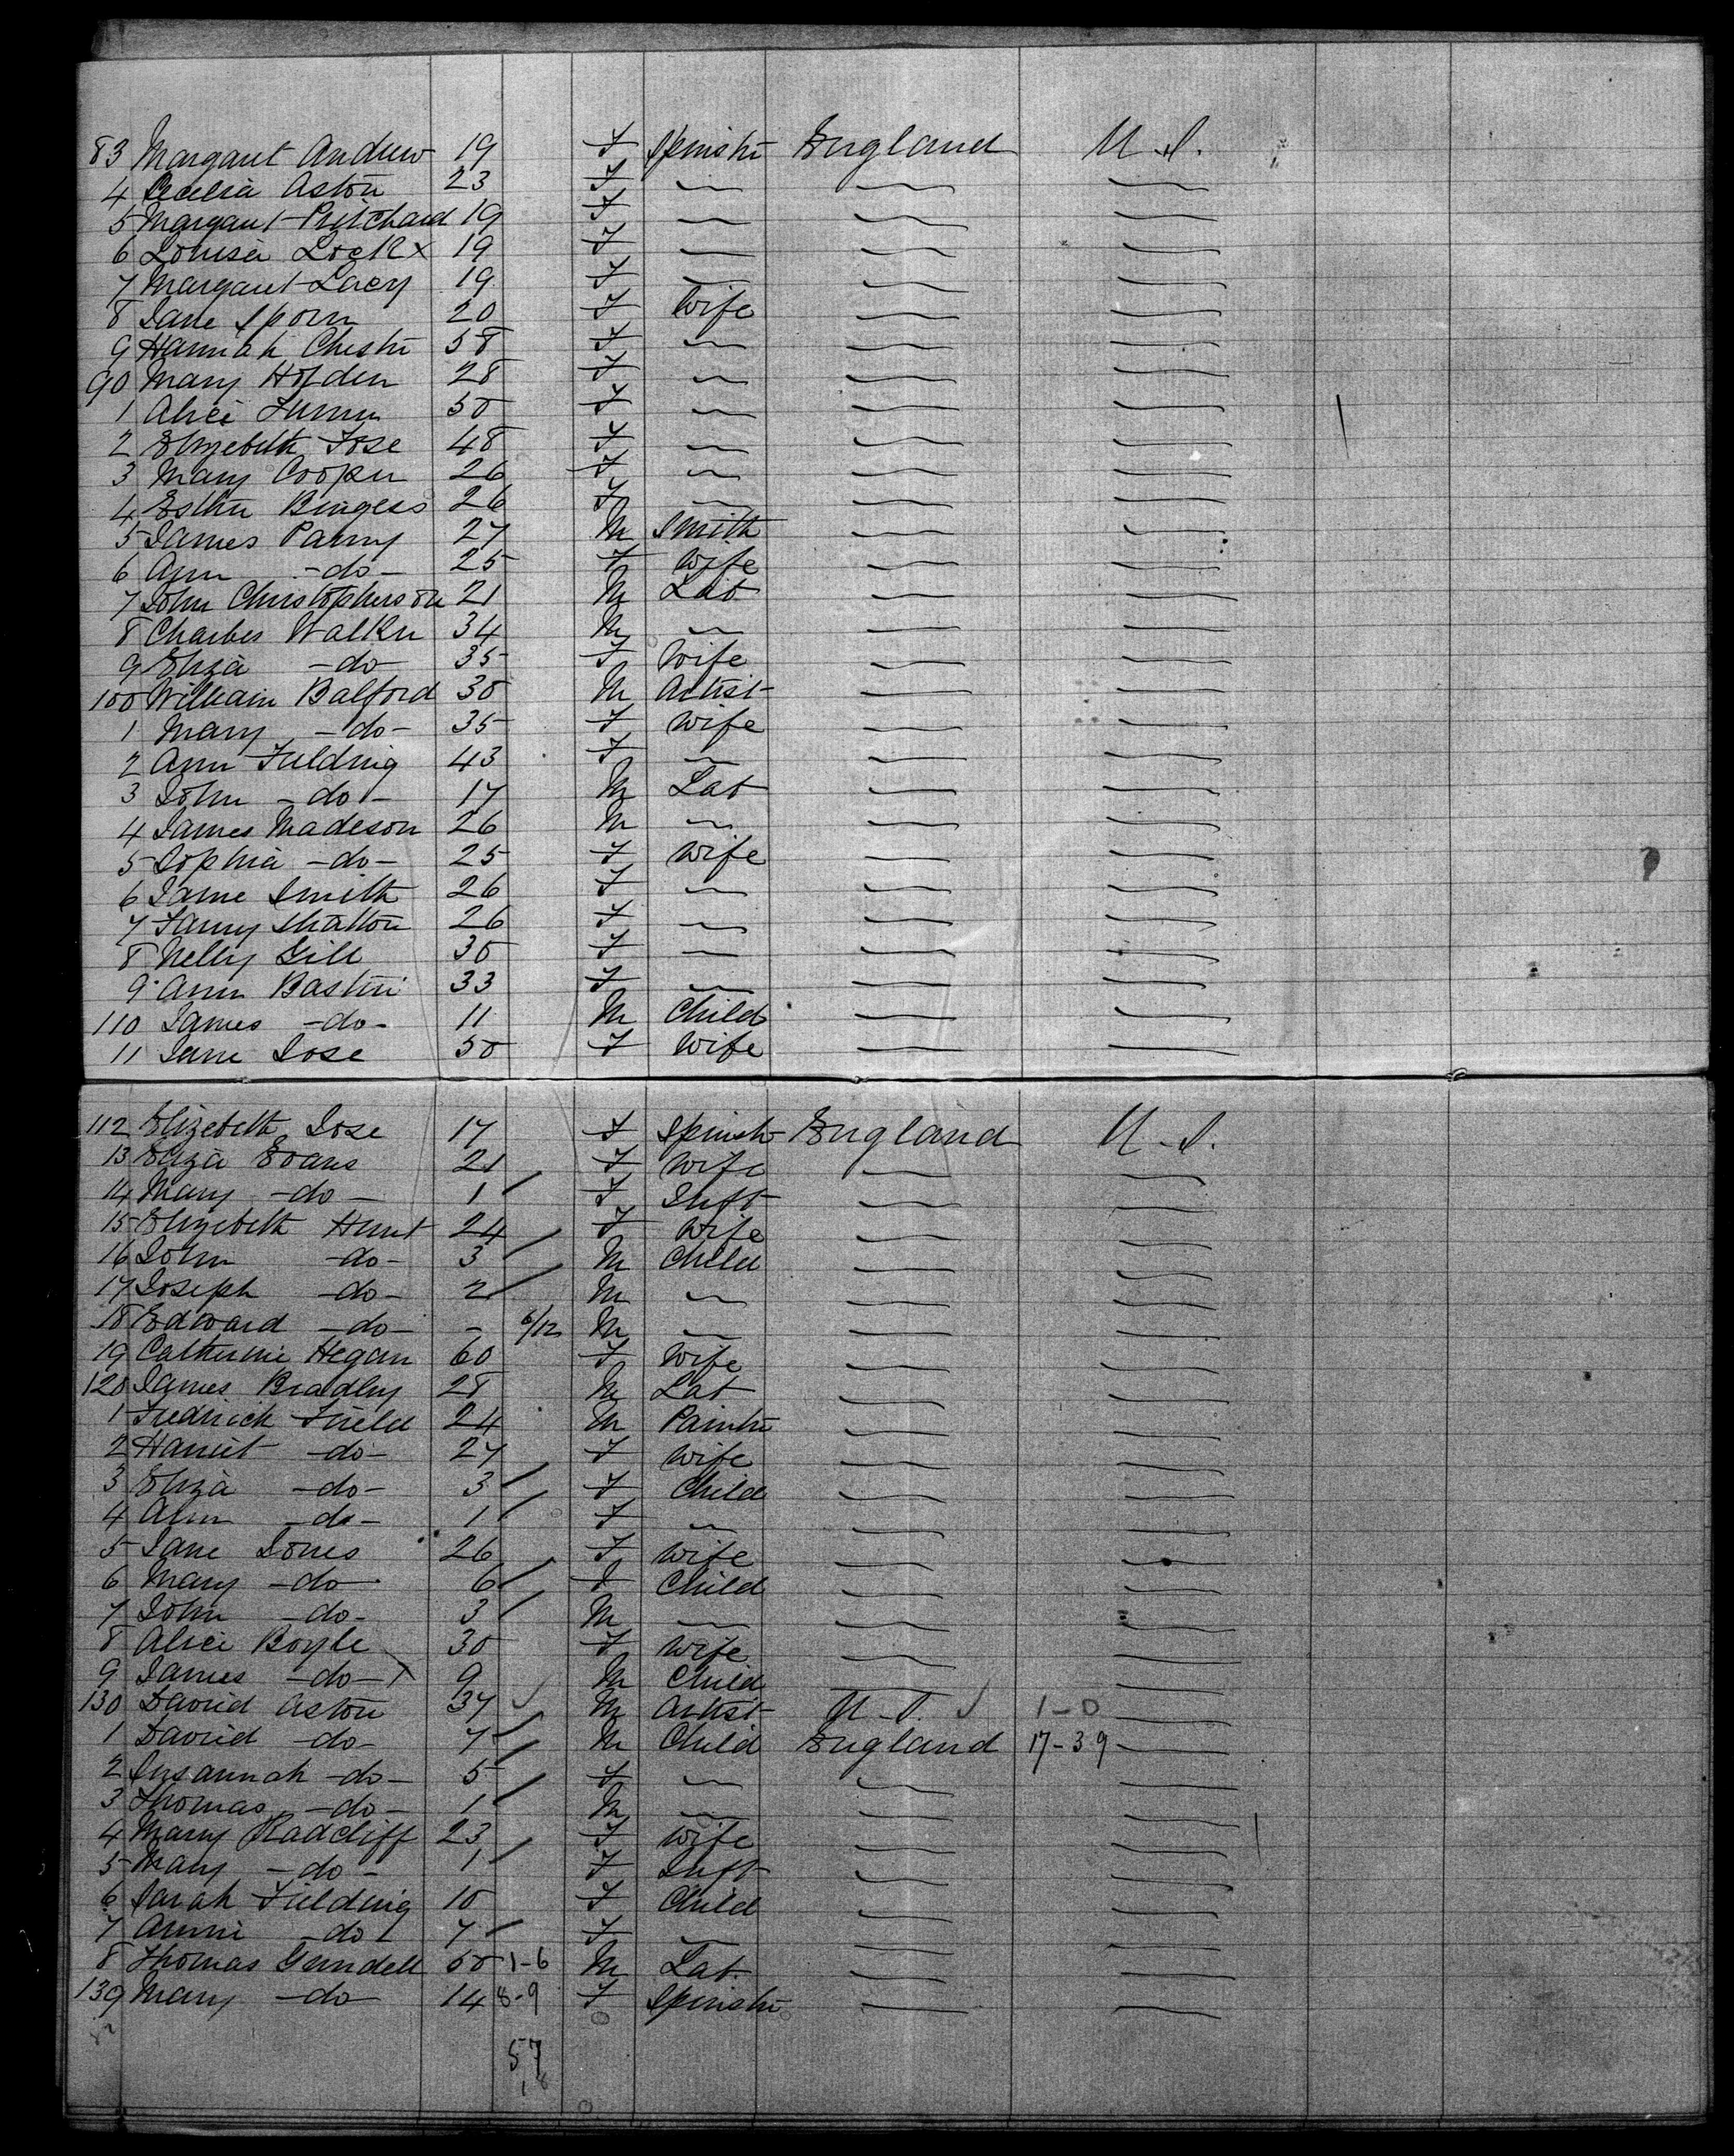 83 Margaret Andrew 19 F Spinstr England U.S.
4 Cecelia Aston 23 F
5 Margaret Pritchard 19 F
6 Louisa Lock x 19 F
7 Margaret Lacy 19 F
8 Jane Sporn 20 F Wife
9 Hannah Chestr 58 F
90 Mary Holden 28 F
1 Alice 50 F
2 Elizebeth Jose 48 F
3 Mary Cooper 26 F
4 Esther Burgess 26 F
5 James Parry 27 M Smith
6 Ann -do- 25 F Wife
7 John Christopherson 21 M Lab
8 Charles Walker 34 M
9 Eliza -do- 35 F Wife
100 William Balford 30 M Artist
1 Mary -do- 35 F Wife
2 Ann Fielding 43 F
3 John -do- 17 M Lab
4 James Madeson 26 M
5 Sophia -do- 25 F Wife
6 Jane Smith 26 F
7 Fanny Shatton 26 F
8 Nelly Gill 30 F
9 Ann Baster 33 F
110 James -do- 11 M Child
11 Jane Jose 50 F Wife
112 Elizebeth Jose 17 F Spinstr England U.S.
13 Eliza Evans 21 F Wife
14 Mary -do- 1 F Inft
15 Elizebeth Hunt 24 F Wife
16 John -do- 3 M Child
17 Joseph -do- 2 M
18 Edward -do- - 6/12 M
19 Catherine Hegan 60 F Wife
120 James Bradley 28 M Lab
1 Fredrick Field 24 M Painter
2 Harriet -do- 27 F Wife
3 Eliza -do- 3 F Child
4 Ann -do- 1 F
5 Jane Jones 26 F Wife
6 Mary -do- 6 F Child
7 John -do- 3 M
8 Alice Boyle 30 F Wife
9 James -do- x 9 M Child
130 David Aston 37 M Artist U.S. 1-0
1 David -do- 7 M Child England 17-39
2 Susannah -do- 5 F
3 Thomas -do- 1 M
4 Mary Radcliff 23 F Wife
5 Mary -do- 1 F Inft
6 Sarah Fielding 10 F Child
7 Annie -do- 7 F
8 Thomas Gundell 50 1-6 M Lab
139 Mary -do- 14 8-9 F Spinstr
57